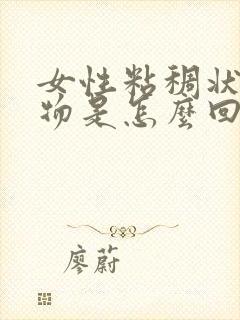 女性粘稠状
物是怎麼回
廖蔚